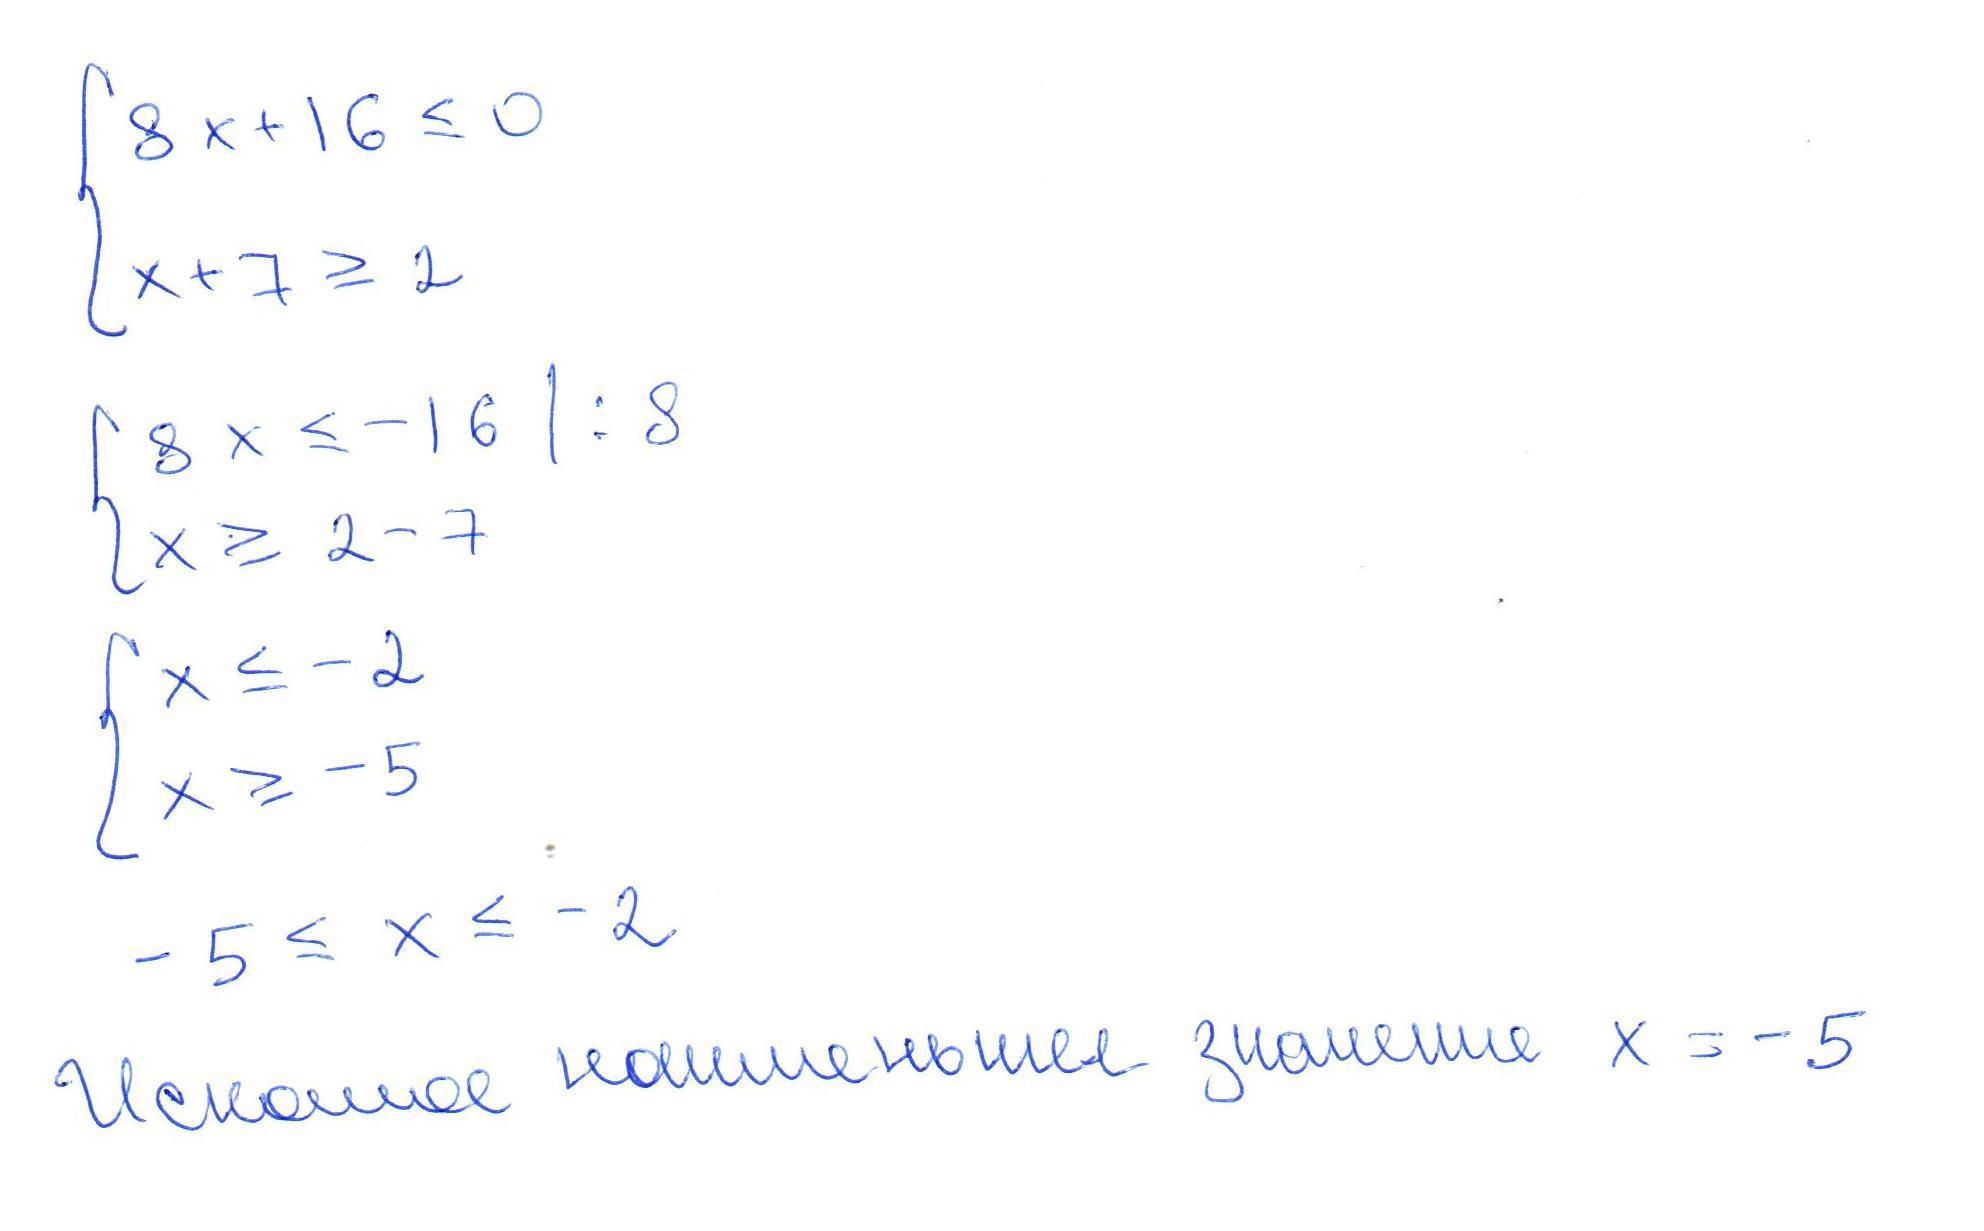 8x+16 ≤ 0
x+7 ≥ 2
8x ≤ -16 | : 8
x ≥ 2-7
x ≤ -2
x ≥ -5
-5 ≤ x ≤ -2
Искомое наименьшее значение x = -5